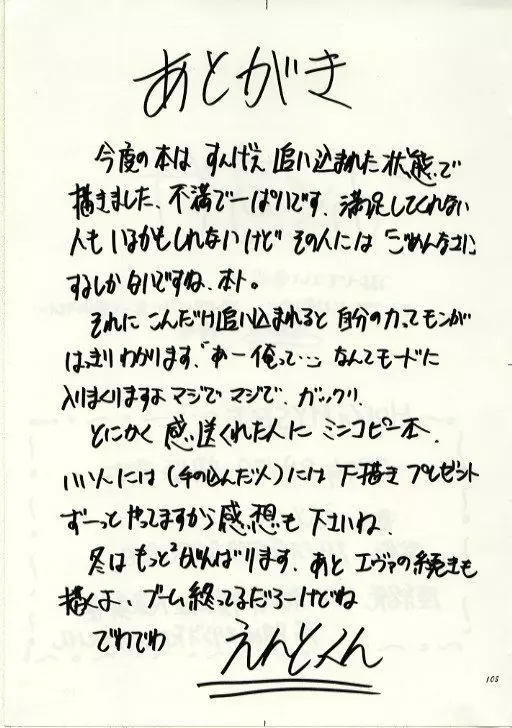 あとがき
今度の本は すんげえ 追い込まれた状態で
描きました、不満で一ぱいです、満足してくれない
人もいるかもしれないけど その人には「ごめんなさいに
するしかないですね、ホト。
それに こんだけ追い込まれると 自分の力ってモンが
はっきりわかります、「あー俺って…」なんてモードに
入りまくりますよ マジで マジで、ガックリ、
とにかく 感想送くれた人に ミニコピー本、
いい人には(手の込んだ人)には 下描き プレゼント
ずーっと やってますから 感想も 下さいね、
冬は もっと²がんばります、あと エヴァの続きも
描くよ、ブーム終ってるだろーけどね
でわでわ えんどくん
105